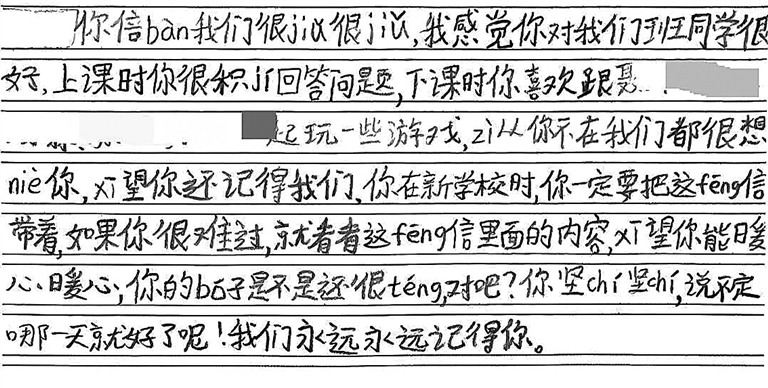 你信bàn我们很jiǔ很jiǔ,我感觉你对我们班同学很
好,上课时你很积jí回答问题,下课时你喜欢跟聂
起玩一些游戏,zì从你不在我们都很想
niè你,xī望你还记得我们,你在新学校时,你一定要把这fēng信
带着,如果你很难过,就看看这fēng信里面的内容,xī望你能暖
心、暖心,你的bó子是不是还很téng,对吧?你坚chí坚chí,说不定
哪一天就好了呢!我们永远永远记得你。